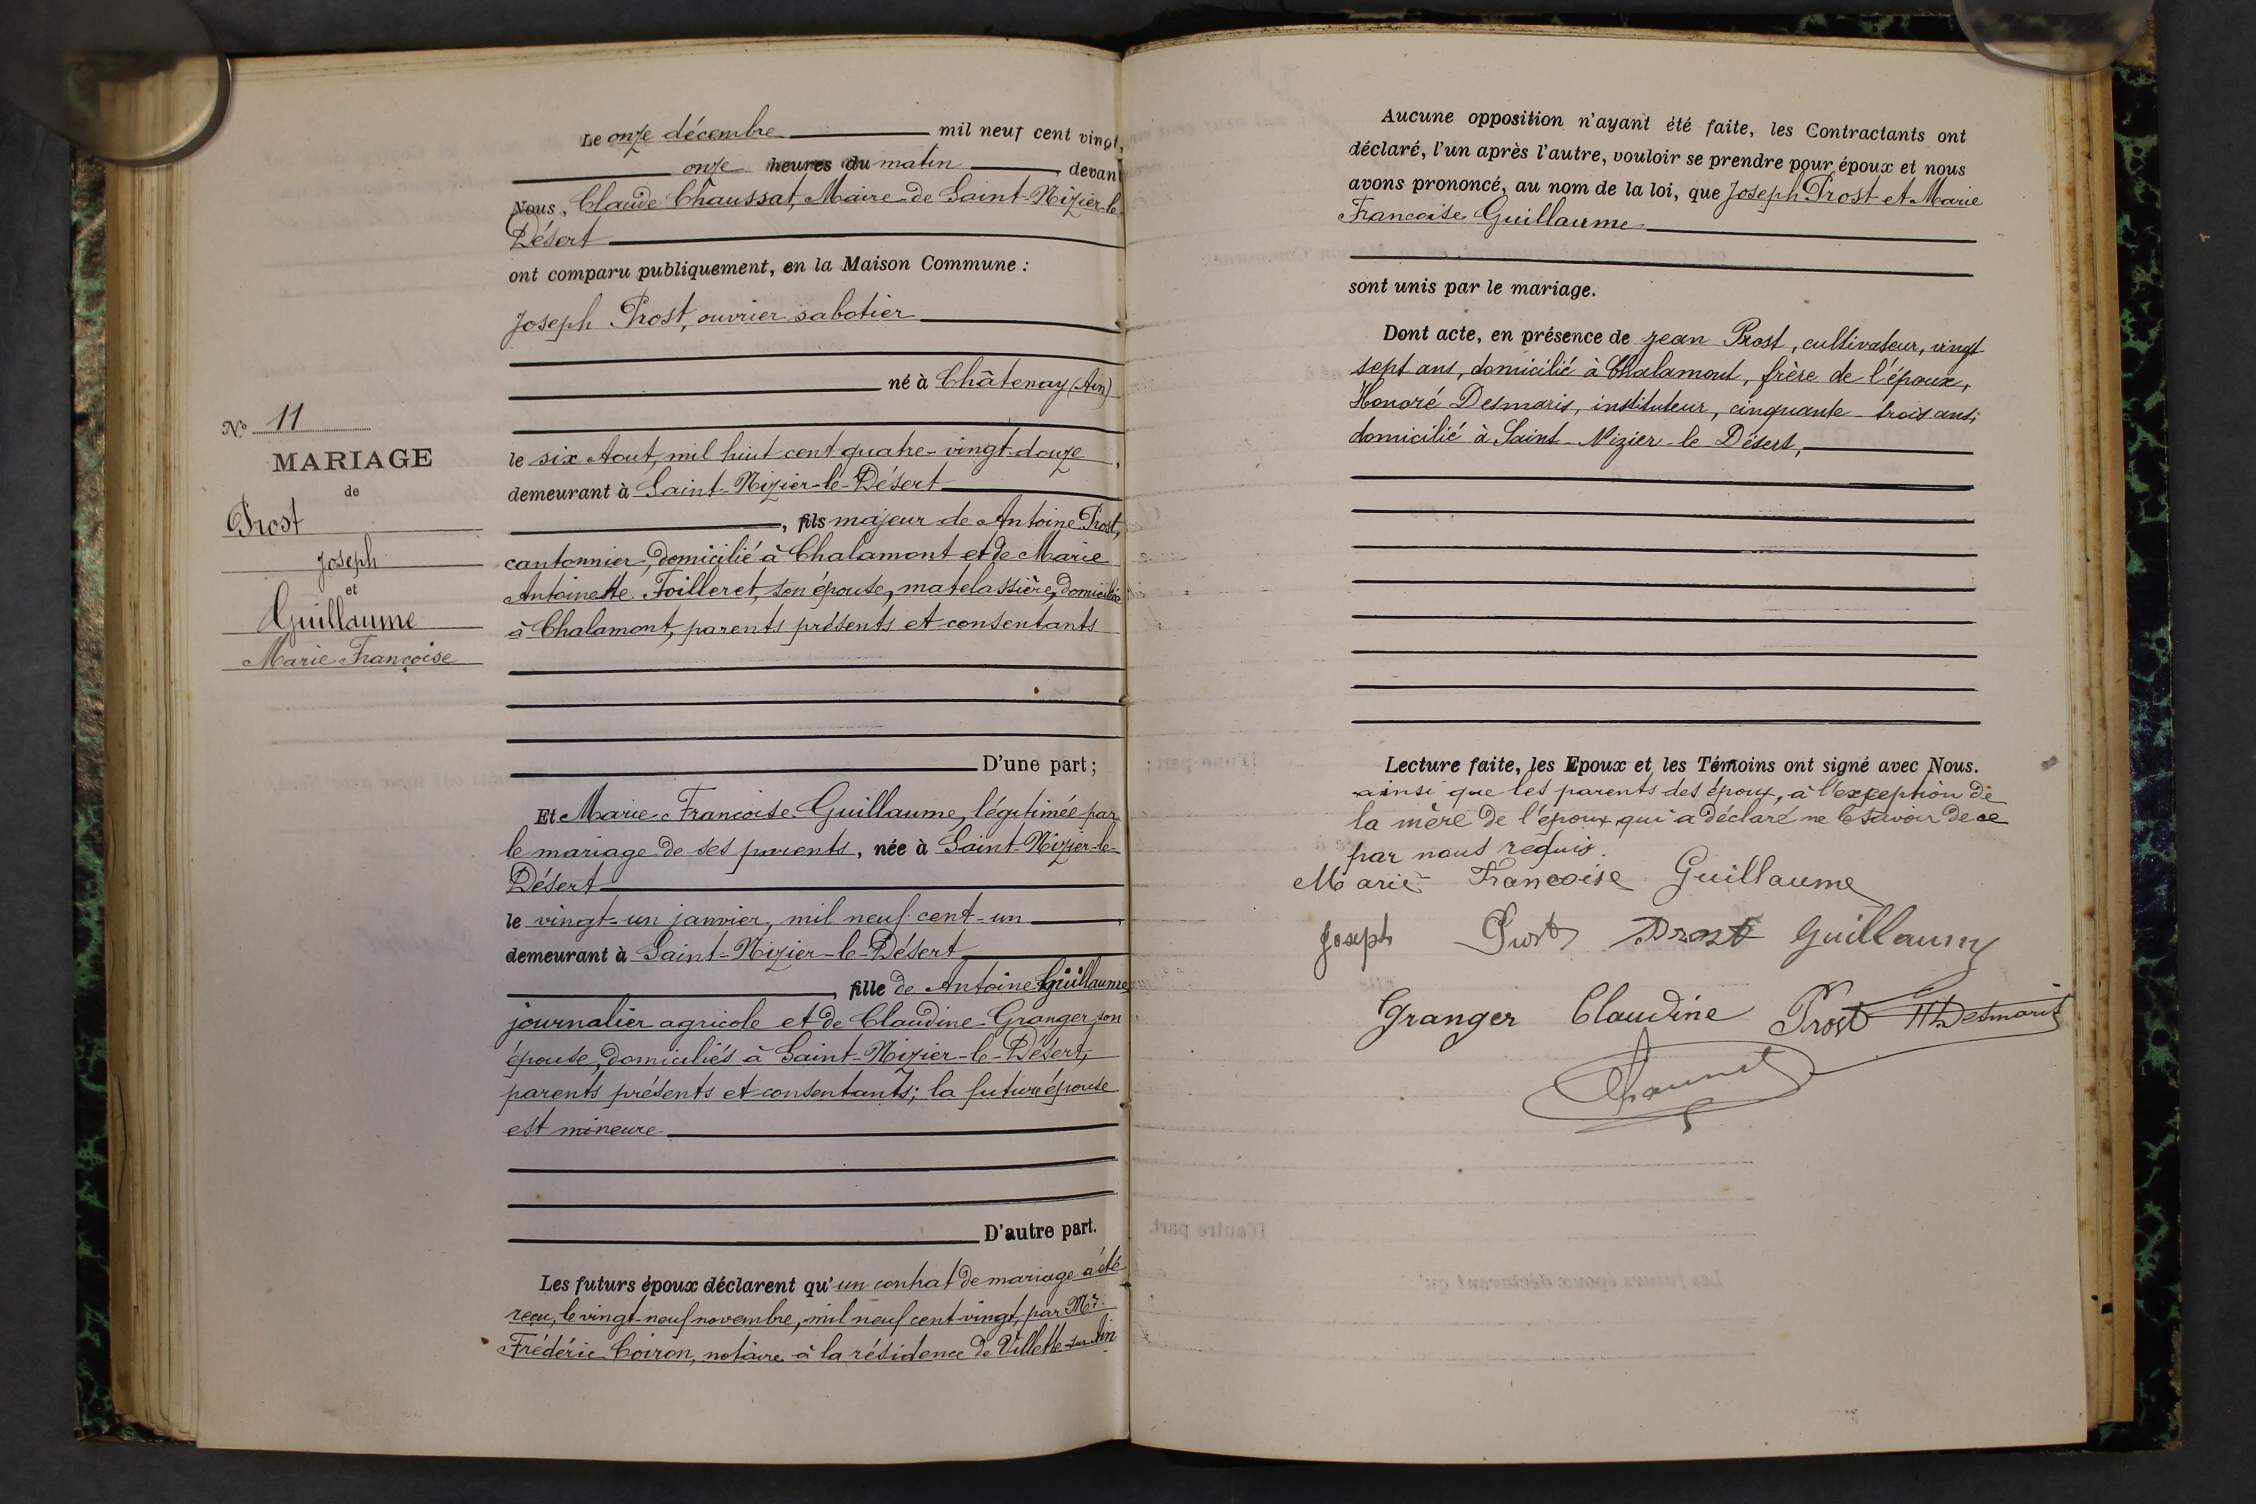 Le onze décembre mil neuf cent vingt,
onze heures du matin, devant
Nous, Claude Chaussat, Maire de Saint-Nizier-le-
Désert
ont comparu publiquement, en la Maison Commune :
Joseph Prost, ouvrier sabotier
né à Châtenay (Ain)
le six Aout, mil huit cent quatre-vingt-douze,
demeurant à Saint-Nizier-le-Désert
, fils majeur de Antoine Prost,
cantonnier, domicilié à Chalamont et de Marie
Antoinette Foilleret, son épouse, matelassière, domiciliée
à Chalamont, parents présents et consentants
D'une part ;
Et Marie Francoise Guillaume, légitimée par
le mariage de ses parents, née à Saint-Nizier-le-
Désert
le vingt-un janvier, mil neuf cent-un,
demeurant à Saint-Nizier-le-Désert
, fille de Antoine Guillaume
journalier agricole et de Claudine Granger, son
épouse, domiciliés à Saint-Nizier-le-Désert,
parents présents et consentants; la future épouse
est mineure
D'autre part.
Les futurs époux déclarent qu'un contrat de mariage a été
reçu, le vingt-neuf novembre, mil neuf cent vingt, par Mr
Frédéric Coiron, notaire à la résidence de Villette-sur-Ain
N° 11
MARIAGE
de
Prost
Joseph
et
Guillaume
Marie Françoise
Aucune opposition n'ayant été faite, les Contractants ont
déclaré, l'un après l'autre, vouloir se prendre pour époux et nous
avons prononcé, au nom de la loi, que Joseph Prost et Marie
Francoise Guillaume
sont unis par le mariage.
Dont acte, en présence de Jean Prost, cultivateur, vingt
sept ans, domicilié à Chalamont, frère de l'époux,
Honoré Desmaris, instituteur, cinquante-trois ans,
domicilié à Saint-Nizier-le Désert,
Lecture faite, les Epoux et les Témoins ont signé avec Nous.
ainsi que les parents des époux, à l'exception de
la mère de l'époux qui a déclaré ne le savoir de ce
par nous requis.
Marie Francoise Guillaume
Joseph Prost Prost Guillaume
Granger Claudine Prost H Desmaris
Chaussat